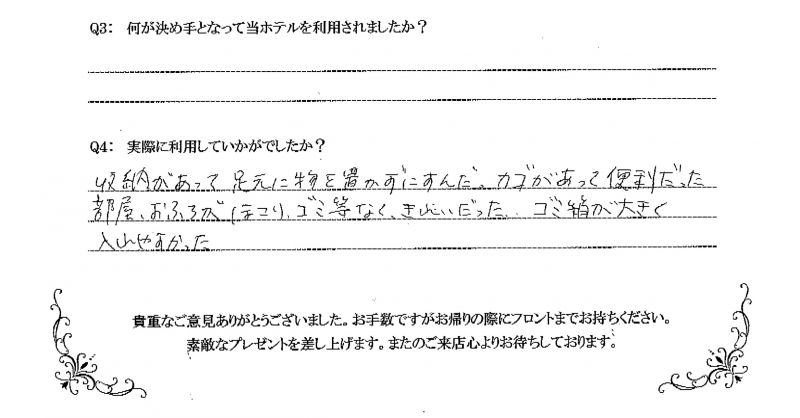 Q3： 何が決め手となって当ホテルを利用されましたか？
Q4： 実際に利用していかがでしたか？
収納があって足元に物を置かずにすんだ。カゴがあって便利だった
部屋、おふろがほこり、ゴミ等なく、きれいだった。ゴミ箱が大きく
入れやすかった
貴重なご意見ありがとうございました。お手数ですがお帰りの際にフロントまでお持ちください。
素敵なプレゼントを差し上げます。またのご来店心よりお待ちしております。